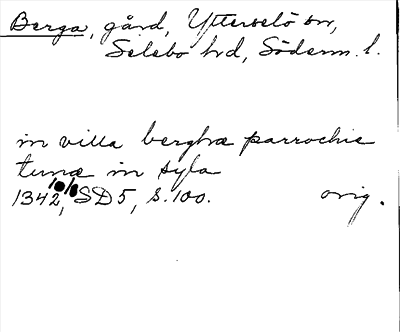 Berga, gård, Ytterselö sn,
Selebo hd, Söderm. l.
in villa bergha parrochie
tunæ in syla
1342 10/8, SD 5, s. 100. orig.